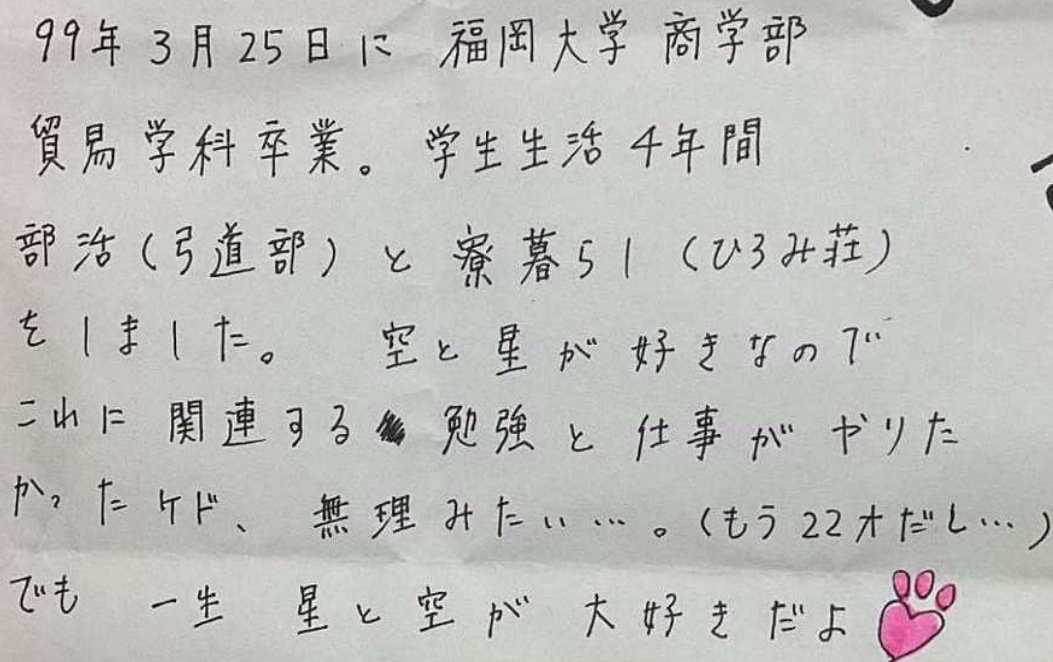 99年3月25日に 福岡大学 商学部
貿易学科卒業。学生生活4年間
部活(弓道部)と寮暮らし(ひろみ荘)
をしました。 空と星が好きなので
これに関連する勉強と仕事がやりた
かったケド、無理みたい…。(もう22才だし…)
でも 一生 星と空が大好きだよ